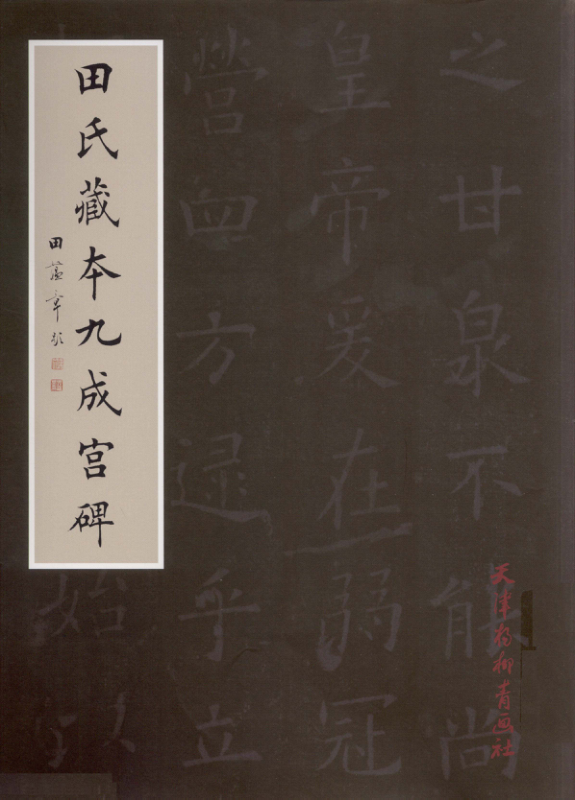 田氏藏本九成宫碑
田蕴章题
之甘泉不能尚
皇帝爰在弱冠
营
四方逮乎立
始以
天津杨柳青画社